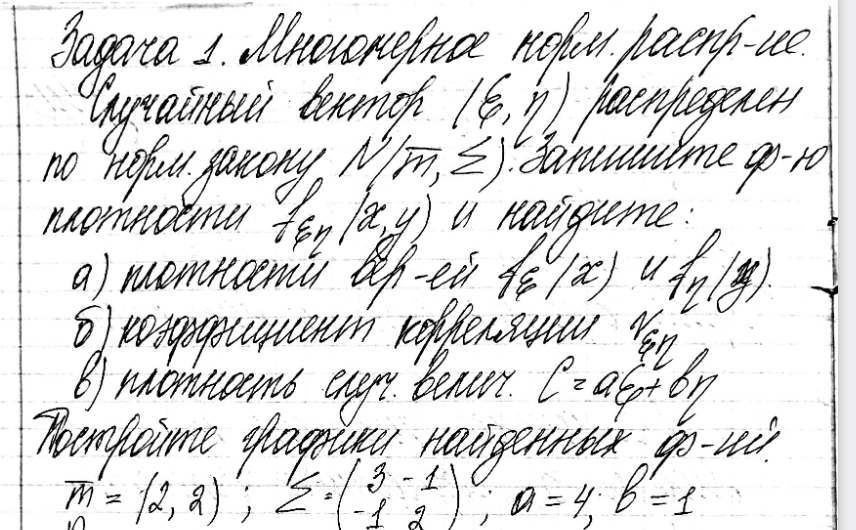 Задача 1. Многомерное норм. распр-ие.
Случайный вектор (ξ, η) распределен
по норм. закону N(m̅, Σ). Запишите ф-ю
плотности f_ξη(x, y) и найдите:
а) плотности вер-ей f_ξ(x) и f_η(y).
б) коэффициент корреляции r_ξη
в) плотность случ. велич. C = aξ + bη
Постройте графики найденных ф-ий.
m̅ = (2, 2) ; Σ = (3 -1
-1 2) ; a = 4; b = 1